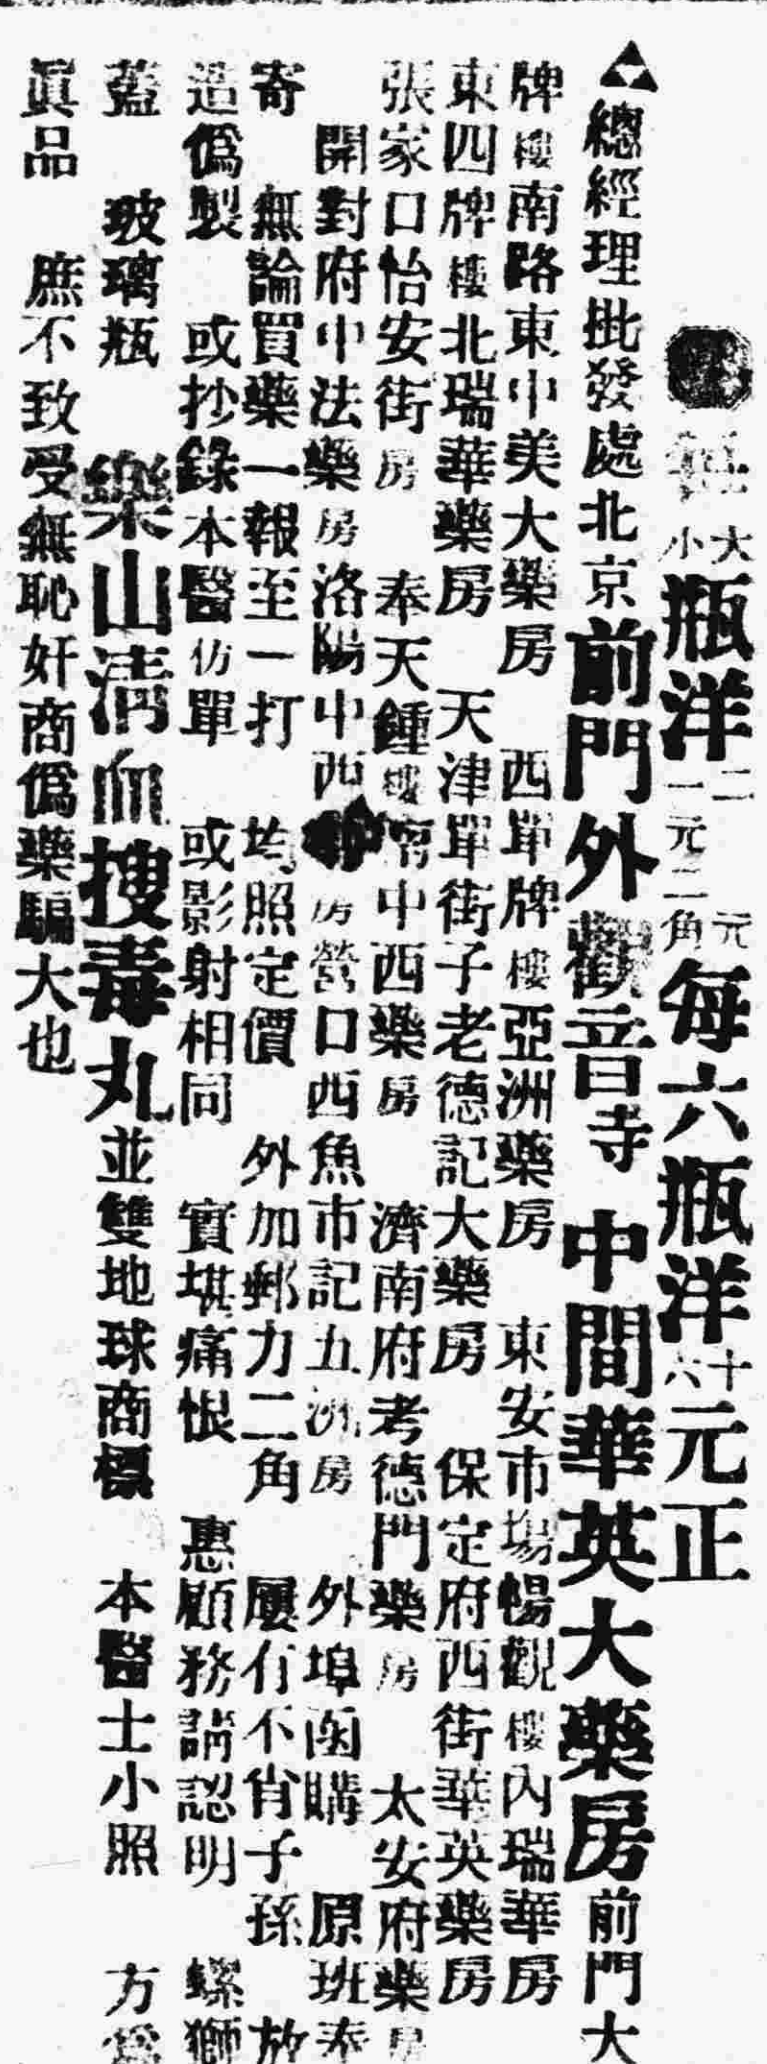 大小瓶洋二元一元二角每六瓶洋十六元正
總經理批發處北京前門外觀音寺中間華英大藥房前門大
牌樓南路東中美大藥房 西單牌樓亞洲藥房 東安市場暢觀樓內瑞華房
東四牌樓北瑞華藥房 天津單街子老德記大藥房 保定府西街華英藥房
張家口怡安街房 奉天鍾樓南中西藥房 濟南府考德門藥房 太安府藥房
開封府中法藥房洛陽中西房營口西魚市記五洲房 外埠函購 原班奉
寄 無論買藥一報至一打 均照定價 外加郵力二角 屢有不肖子孫 放
造僞製 或抄錄本醫仿單 或影射相同 實堪痛恨 惠顧務請認明 螺獅
蓋 玻璃瓶 樂山清血搜毒丸並雙地球商標 本醫士小照 方爲
眞品 庶不致受無恥奸商僞藥騙大也